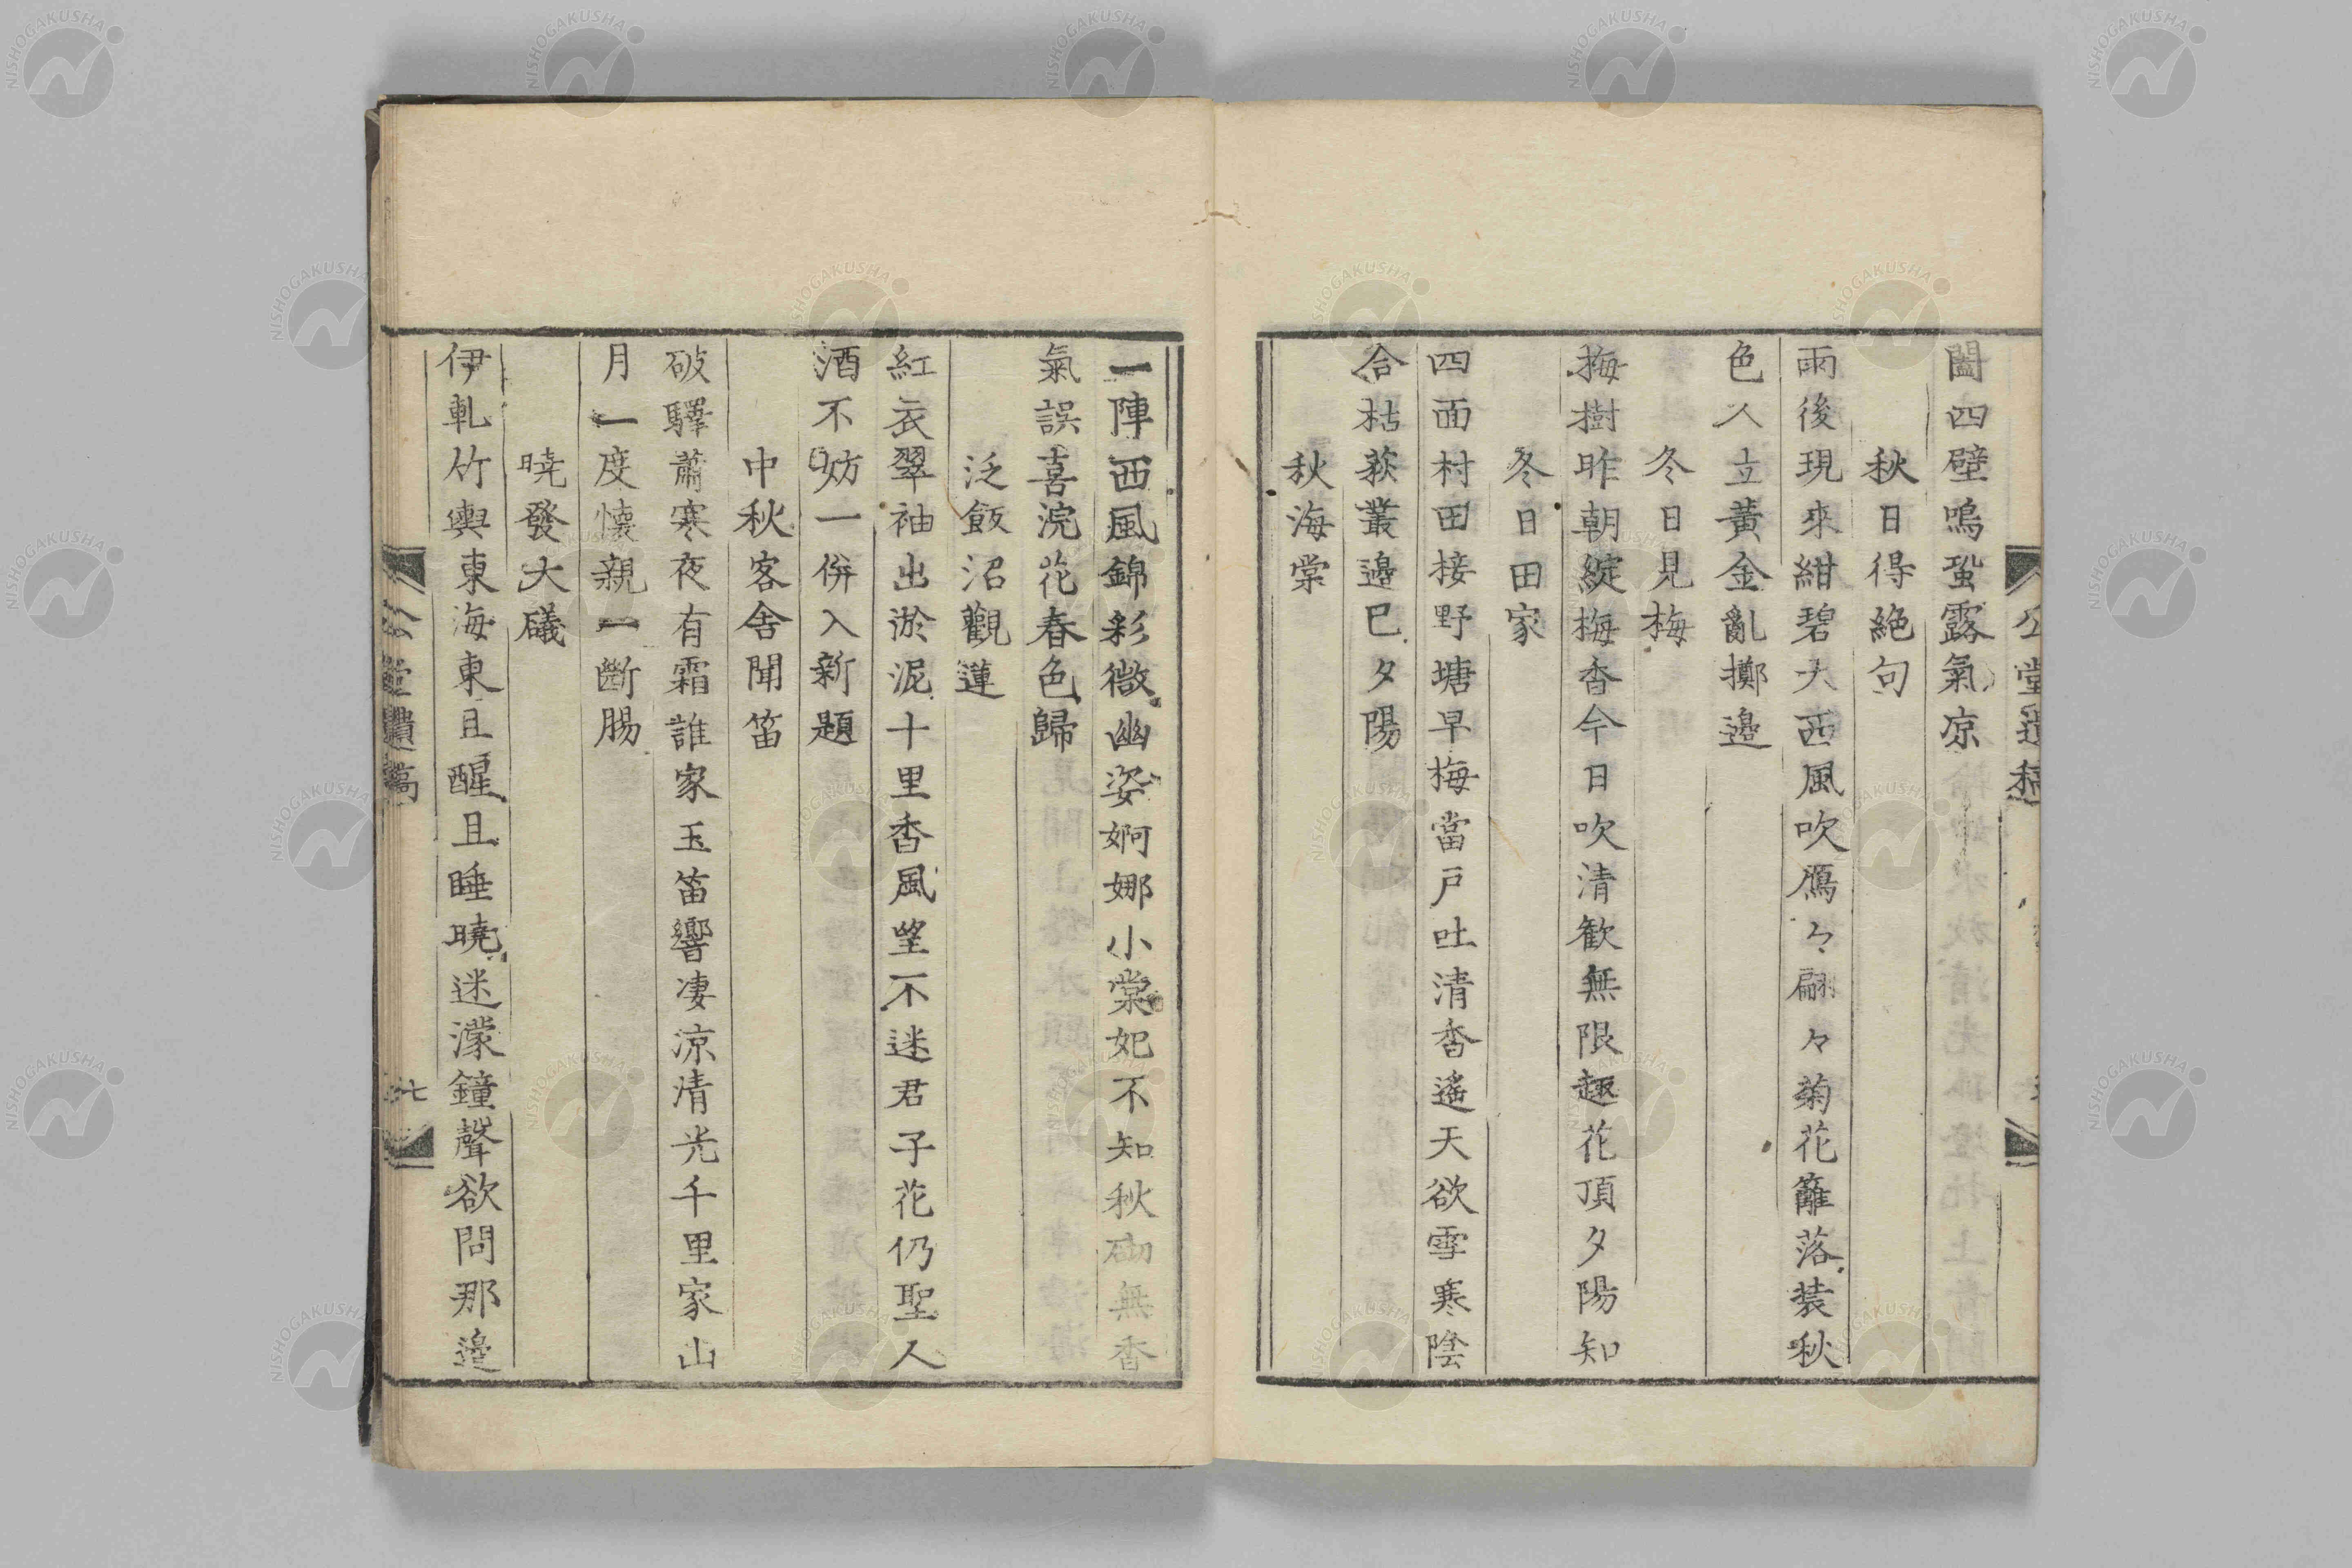 公堂遺稿
闔四壁鳴蛩露氣凉
秋日得絶句
雨後現來紺碧天西風吹鴈々翩々菊花籬落装秋
色人立黃金亂擲邉
冬日見梅
梅樹昨朝綻梅香今日吹清歓無限趣花頂夕陽知
冬日田家
四面村田接野塘早梅當戸吐清香遙天欲雪寒陰
合枯荻叢邉巳夕陽
秋海棠
一陣西風錦彩微幽姿婀娜小棠妃不知秋砌無香
氣誤喜浣花春色歸
泛飯沼觀蓮
紅衣翠袖出淤泥十里香風望不迷君子花仍聖人
酒不妨一併入新題
中秋客舎聞笛
破驛蕭寒夜有霜誰家玉笛響凄凉清光千里家山
月一度懐親一斷腸
曉發大礒
伊軋竹輿東海東且醒且睡曉迷濛鐘聲欲問那邉
公堂遺稿
七
NISHOGAKUSHA